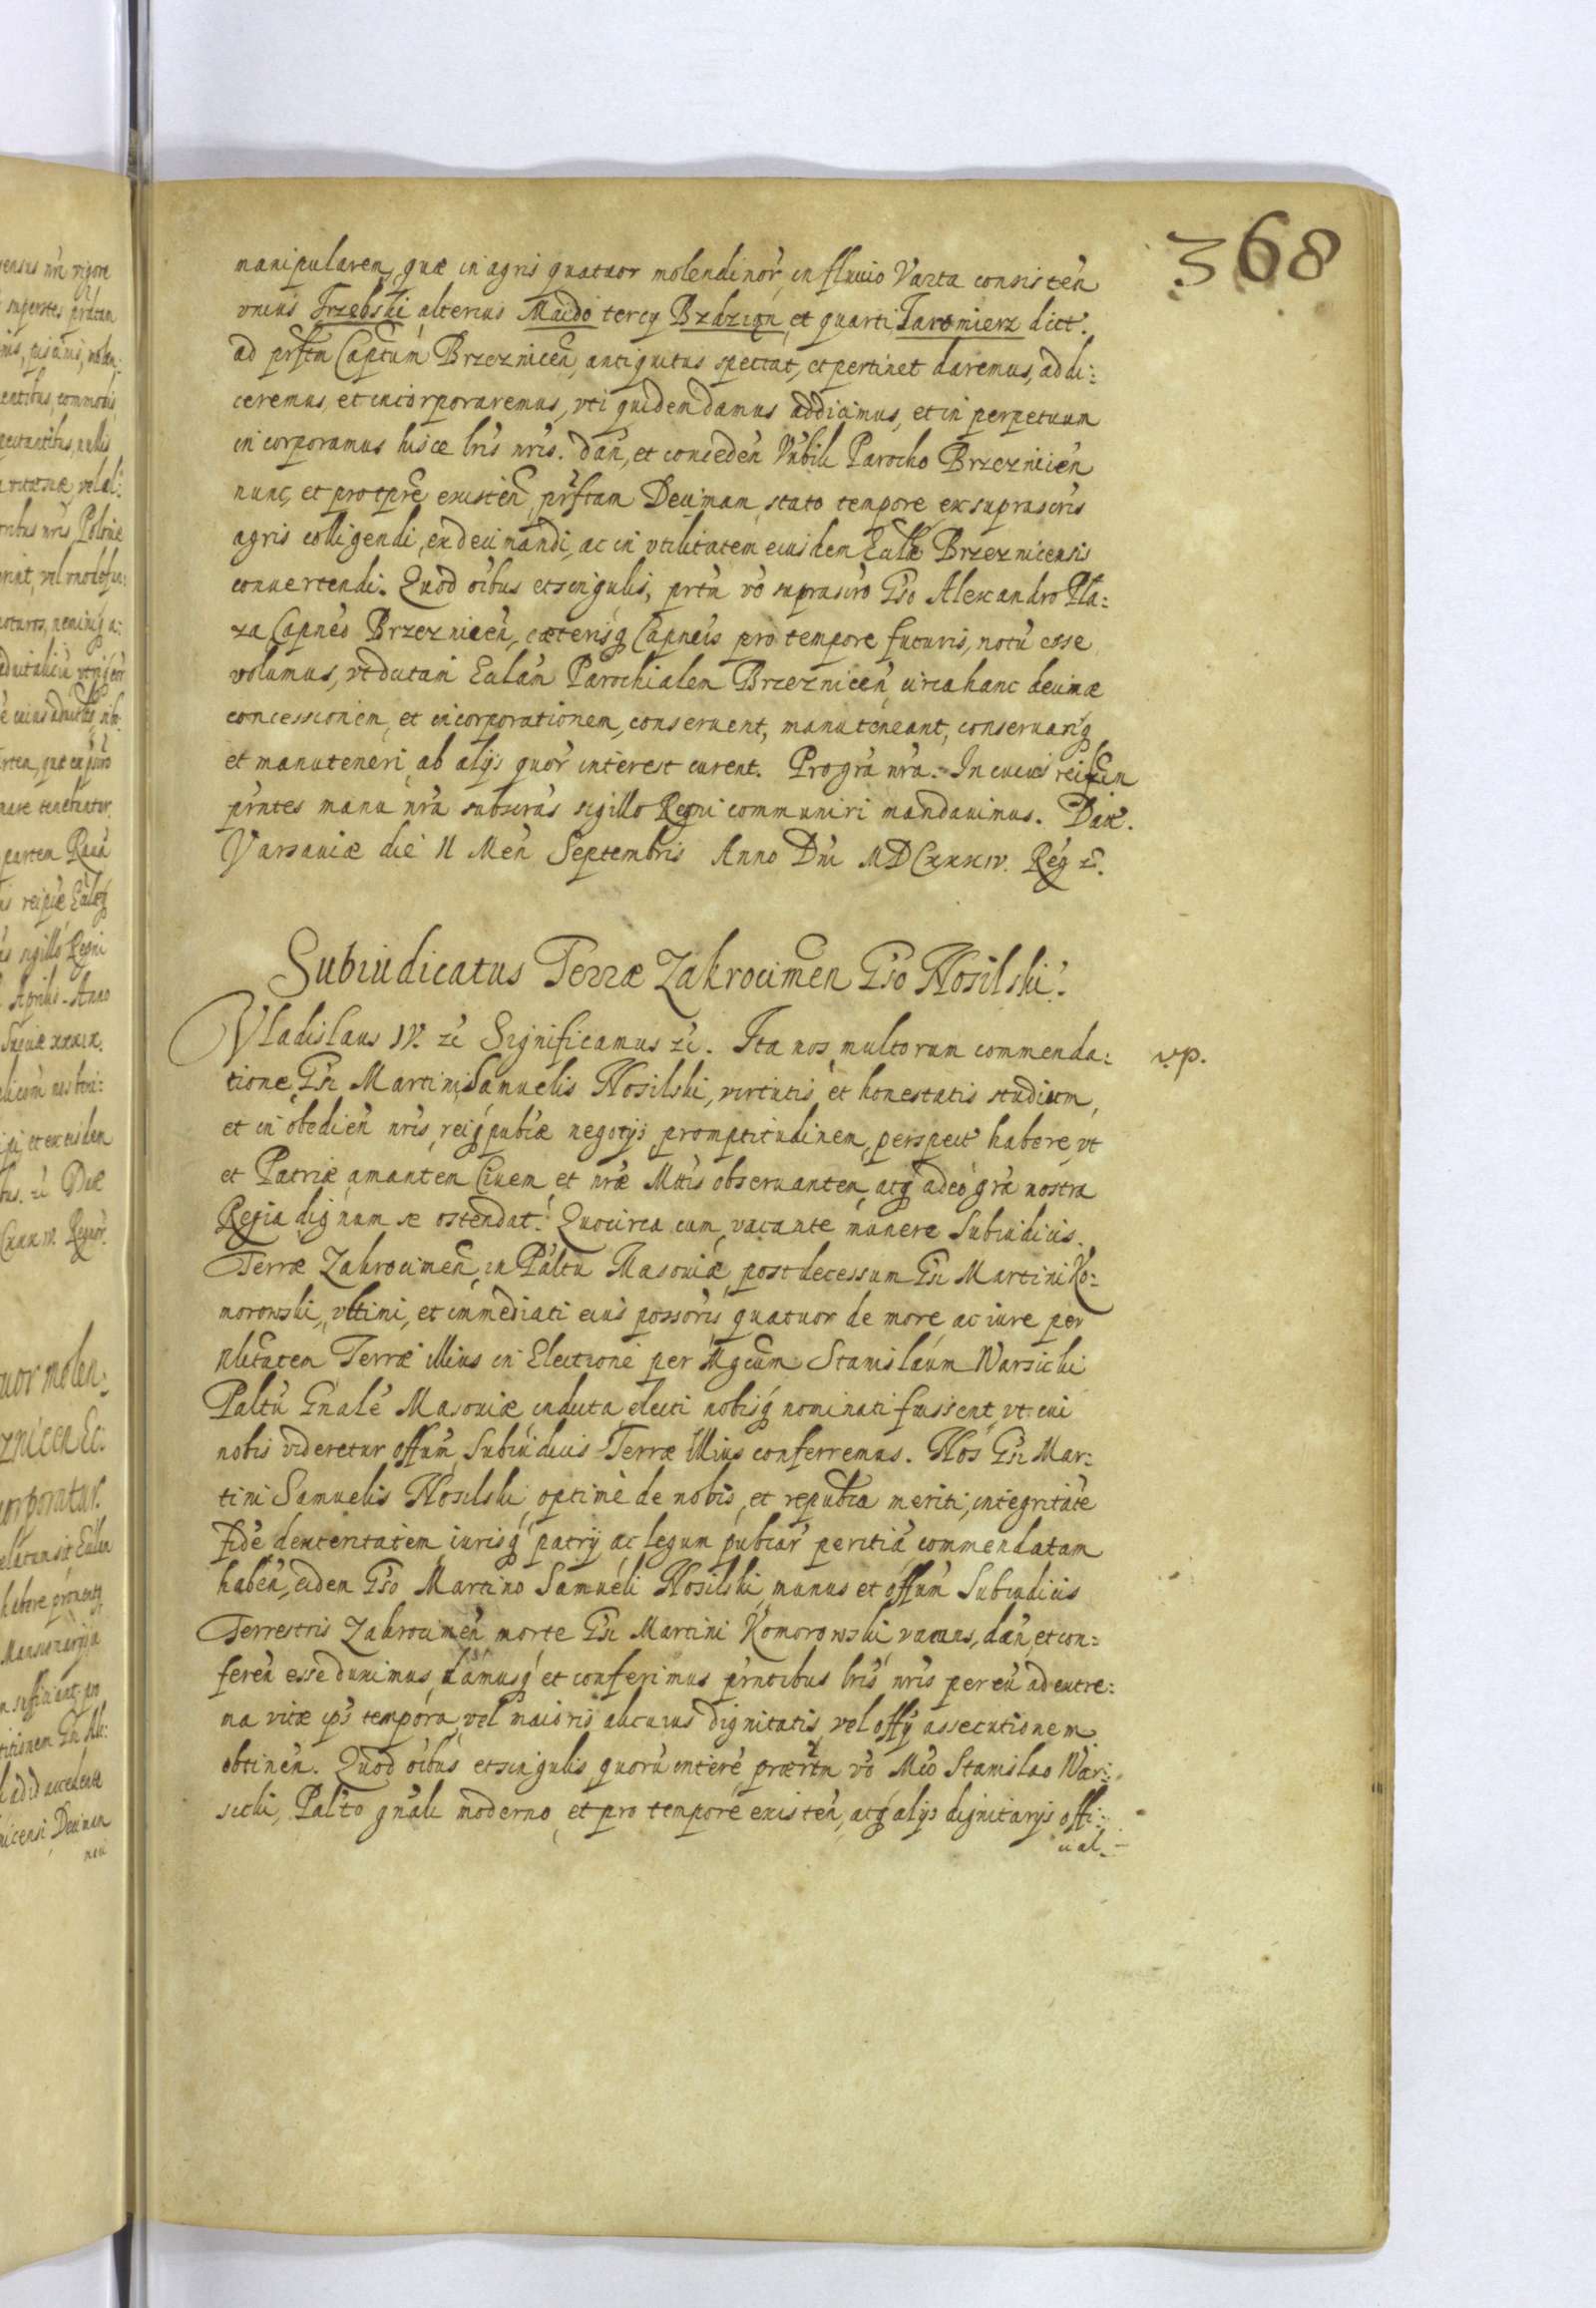 368
manipularem, quæ in agris quatuor molendinor̃, in fluuio Varta consisteñ
vnius Trzebski alterius Maido tercij Bzdzion, et quarti Jaromierz dict.
ad prẽtm Captum Brzezniceñ, antiquitus spectat, et pertinet daremus, addi:
ceremus, et incorporaremus, vti quidem damus addicimus, et in perpetuum
incorporamus hisce lris nris. dañ, et concedeñ Vnbili Parocho Brzezniceñ
nunc, et pro tpre existeñ, præftam Decimam, stato tempore ex suprascris
agris colligendi, ex decimandi, ac in vtilitatem eiusdem Eccliæ Brzeznicensis
conuertendi. Quod oibus et singulis, prtm vo suprascro Gso Alexandro Pla:
za Capneo Brzezniceñ, cæterisq Capneis pro tempore futuris, notũ esse
volumus, vt dictam Ecclam Parochialem Brzezniceñ circa hanc decimæ
concessionem, et incorporationem, conseruent, manuteneant, conseruariq
et manuteneri, ab alijs quor̃ interest curent. Pro gra nra. In cuius rei fidem
prntes manu nra subscras sigillo Regni communiri mandauimus. Dat.
Varsauiæ die 11 Meñ Septembris Anno Dni MDCxxxiv. Reg &.
Subiudicatus Terræ Zakrocimeñ Gso Nosilski.
Vladislaus IV. &c Significamus &c. Ita nos multorum commenda:
vp.
tione Gsi Martini Samuelis Nosilski, virtutis, et honestatis studium,
et in obedieñ nris, reiq publicæ negotijs promptitudinem, perspect habere, vt
et Patriæ amantem Ciuem, et nræ Mttis obseruantem, atq adeo gra nostra
Regia dignum se ostendat. Quocirca cum vacante munere Subiudicis
Terræ Zakrocimeñ, in Paltu Masouiæ, post decessum Gsi Martini Ko:
morowski, vltimi, et immediati eius possoris quatuor de more ac iure per
Nlitatem Terræ illius in Electione per Mgcum Stanislaum Warsicki
Paltũ Gnale Masouiæ indicta, electi nobisq nominati fuissent, vt cui
nobis videretur offum Subiudicis Terræ illius conferremus. Nos Gsi Mar:
tini Samuelis Nosilski, optimè de nobis, et republica meriti, integritate
fide dexteritatem, iurisq patrij ac legum publicar̃ peritia commendatam
habeñ, eidem Gso Martino Samueli Nosilski, munus et offum Subiudicis
Terrestris Zakrocimeñ morte Gsi Martini Komorowski vacans, dañ, et con:
fereñ esse duximus, damusq et conferimus prntibus lris nris per eũ ad extre:
ma vitæ ips tempora, vel maioris alicuius dignitatis, vel offy assecutionem
obtineñ. Quod oibus et singulis quorũ intere, prærtm vo Mco Stanislao War:
sicki, Palto gnali moderno, et pro tempore existeñ, atq alijs dignitarijs offi:
cial.